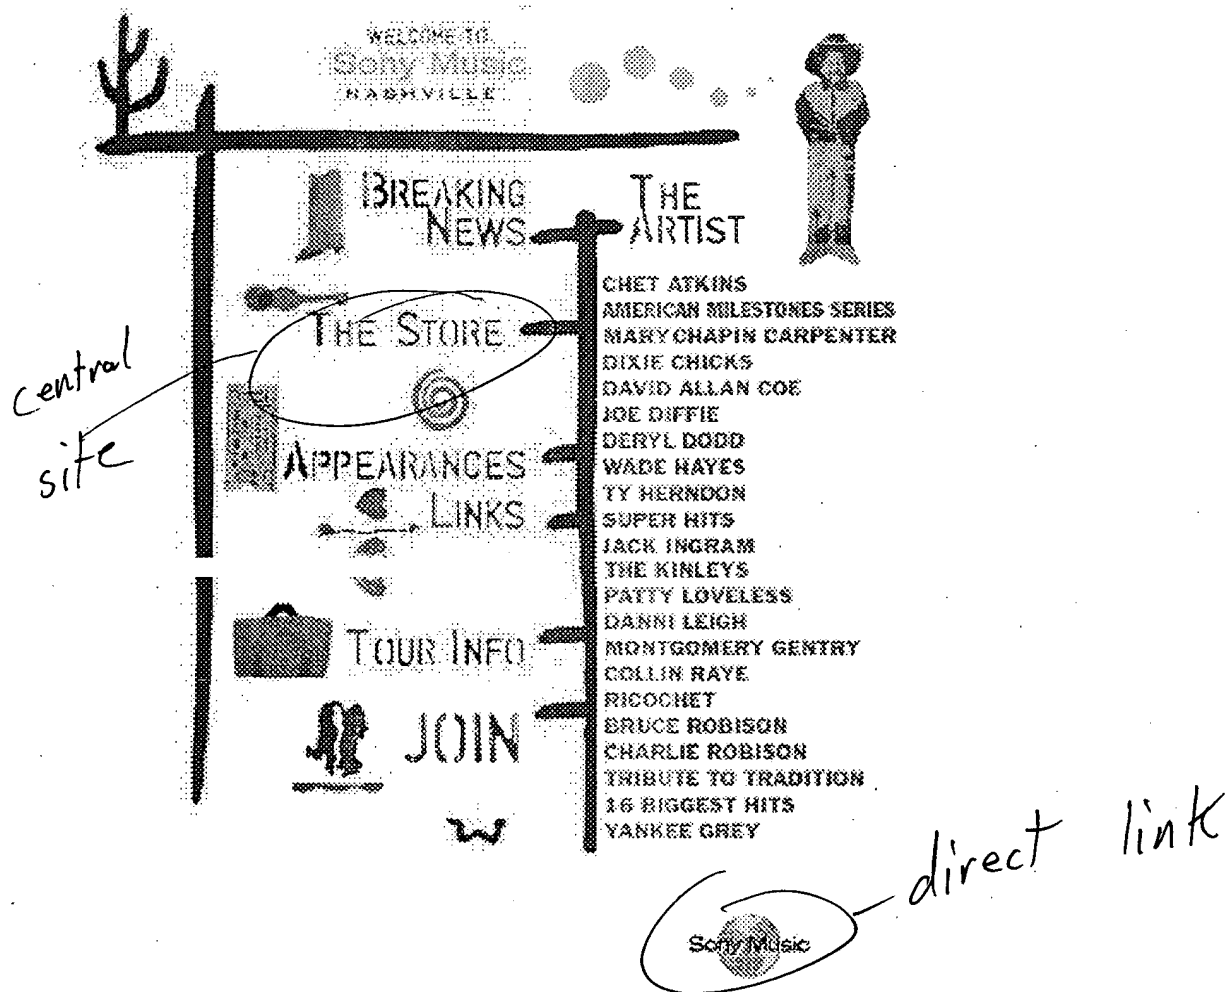 WELCOME TO
Sony Music
NASHVILLE
BREAKING
NEWS
THE
ARTIST
THE STORE
central
site
APPEARANCES
LINKS
TOUR INFO
JOIN
CHET ATKINS
AMERICAN MILESTONES SERIES
MARY CHAPIN CARPENTER
DIXIE CHICKS
DAVID ALLAN COE
JOE DIFFIE
DERYL DODD
WADE HAYES
TY HERNDON
SUPER HITS
JACK INGRAM
THE KINLEYS
PATTY LOVELESS
DANNI LEIGH
MONTGOMERY GENTRY
COLLIN RAYE
RICOCHET
BRUCE ROBISON
CHARLIE ROBISON
TRIBUTE TO TRADITION
16 BIGGEST HITS
YANKEE GREY
direct link
Sony Music